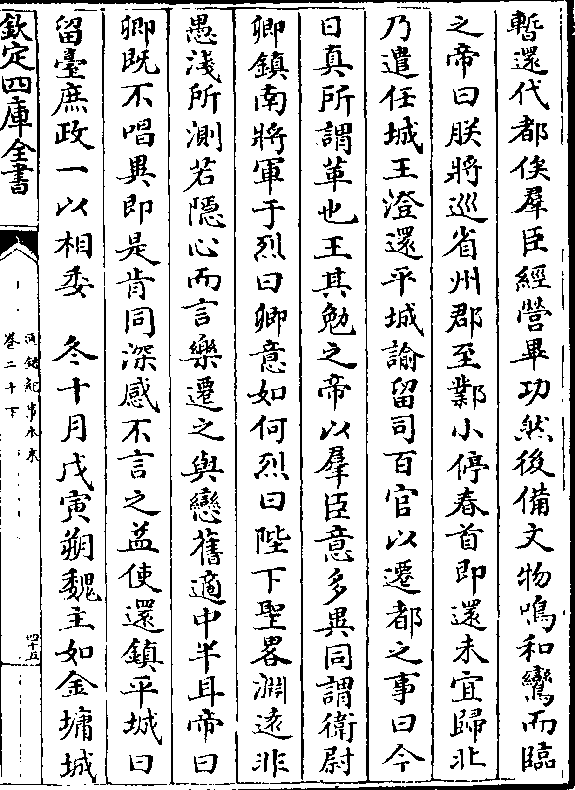 暫還代都俟羣臣經營畢功然後備文物鳴和鸞而臨
之帝曰朕將巡省州郡至鄴小停春首即還未宜歸北
乃遣任城王澄還平城諭留司百官以遷都之事曰今
日真所謂革也王其勉之帝以羣臣意多異同謂衛尉
卿鎮南將軍于烈曰卿意如何烈曰陛下聖畧淵逺非
愚淺所測若隠心而言樂遷之與戀舊適中半耳帝曰
卿既不唱異即是肯同深感不言之益使還鎮平城曰
留臺庶政一以相委 冬十月戊寅朔魏主如金墉城
欽定四庫全書
通鑑紀事本末
卷二十下
四十五